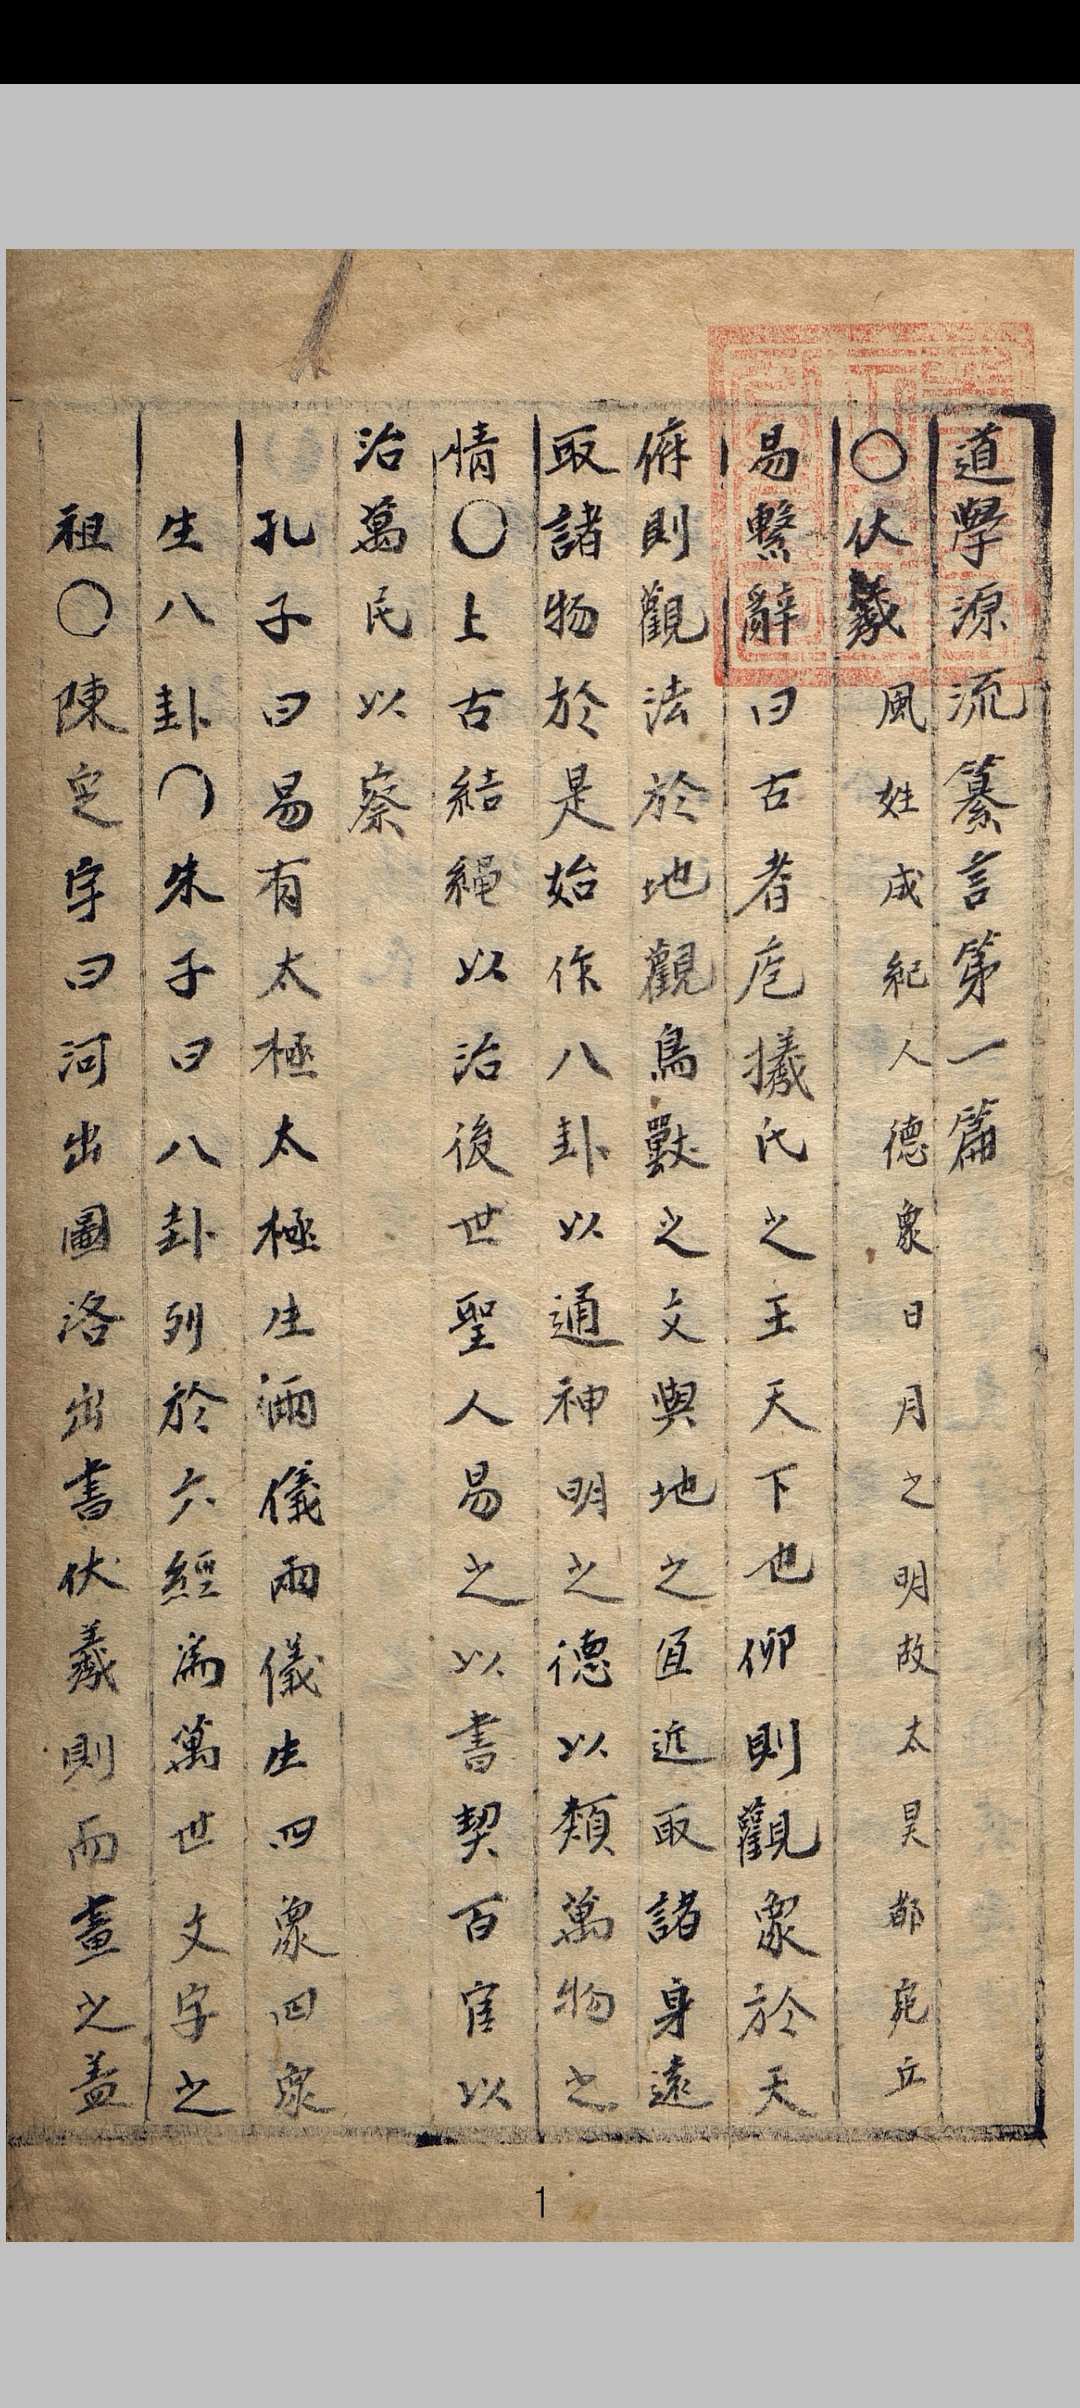 道學源流纂言第一篇
〇伏羲風姓成紀人德象日月之明故太昊都宛丘
易繫辭曰古者庖犧氏之王天下也仰則觀象於天
俯則觀法於地觀鳥獸之文與地之宜近取諸身遠
取諸物於是始作八卦以通神明之德以類萬物之
情〇上古結繩以治後世聖人易之以書契百官以
治萬民以察
孔子曰易有太極太極生兩儀兩儀生四象四象
生八卦〇朱子曰八卦列於六經為萬世文字之
祖〇陳定宇曰河出圖洛出書伏羲則而畫之蓋
1